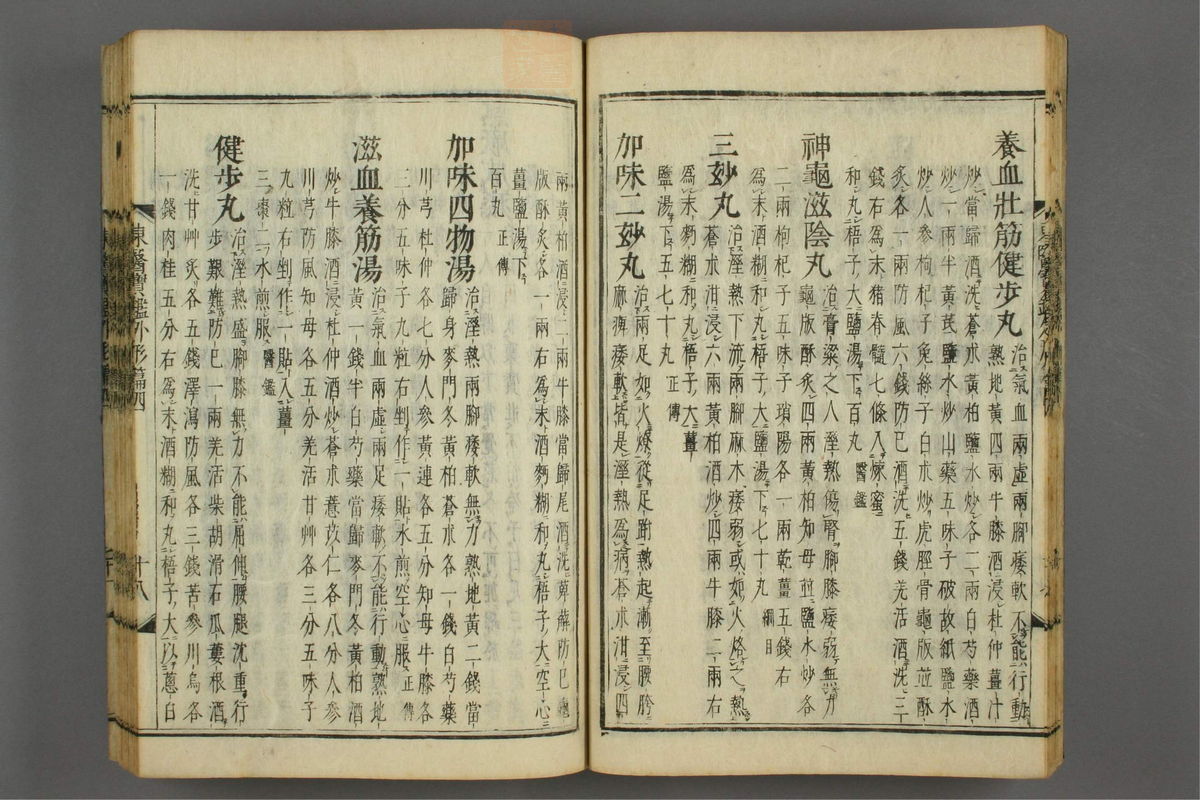 養血壯筋健步丸 治氣血兩虛兩腳痿軟不能行動熟地黃四兩牛膝酒浸杜仲薑汁
炒當歸酒洗蒼朮黃柏鹽水炒各二兩白芍藥酒
炒一兩半黃芪鹽水炒山藥五味子破故紙鹽水
炒人參枸杞子兔絲子白朮炒虎脛骨龜版並酥
炙各一兩防風六錢防巳酒洗五錢羌活酒洗三
錢右為末猪脊髓七條入煉蜜
和丸梧子大鹽湯下百丸 醫鑑
神龜滋陰丸 治膏粱之人溼熱傷腎腳膝痿弱無力龜版酥炙四兩黃柏知母並鹽水炒各
二兩枸杞子五味子瑣陽各一兩乾薑五錢右
為末酒糊和丸梧子大鹽湯下七十丸 綱目
三妙丸 治溼熱下流兩腳麻木痿弱或如火烙之熱蒼朮泔浸六兩黃柏酒炒四兩牛膝二兩右
為末麪糊和丸梧子大薑
鹽湯下五七十丸 正傳
加味二妙丸 治兩足如火燎從足跗熱起漸至腰胯麻痺痿軟皆是溼熱為病蒼朮泔浸四
兩黃柏酒浸二兩牛膝當歸尾酒洗萆薢防巳龜
版酥炙各一兩右為末酒麪糊和丸梧子大空心
薑鹽湯下
百丸 正傳
加味四物湯 治溼熱兩腳痿軟無力熟地黃二錢當歸身麥門冬黃柏蒼朮各一錢白芍藥
川芎杜仲各七分人參黃連各五分知母牛膝各
三分五味子九粒右剉作一貼水煎空心服 正傳
滋血養筋湯 治氣血兩虛兩足痿軟不能行動熟地黃一錢半白芍藥當歸麥門冬黃柏酒
炒牛膝酒浸杜仲酒炒蒼朮薏苡仁各八分人參
川芎防風知母各五分羌活甘艸各三分五味子
九粒右剉作一貼入薑
三棗二水煎服 醫鑑
健步丸 治溼熱盛腳膝無力不能屈伸腰腿沈重行步艱難防巳一兩羌活柴胡滑石瓜蔞根酒
洗甘艸炙各五錢澤瀉防風各三錢苦參川烏各
一錢肉桂五分右為末酒糊和丸梧子大以蔥白
東醫寶鑑外形篇四
十八